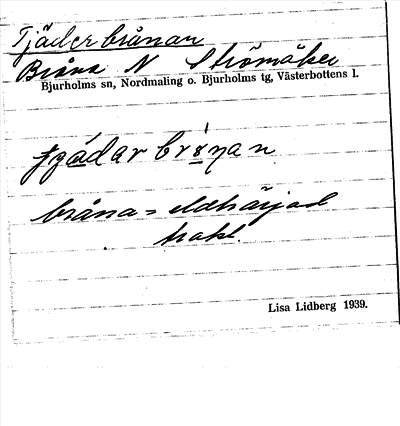 Tjäderbrånan
Bråna N Strömåker
Bjurholms sn, Nordmaling o. Bjurholms tg, Västerbottens l.
bråna = eldhärjad
trakt.
Lisa Lidberg 1939.